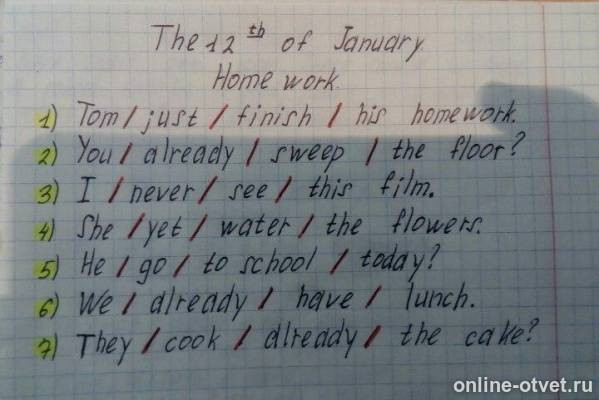 The 12th of January
Home work.
1) Tom / just / finish / his homework.
2) You / already / sweep / the floor?
3) I / never / see / this film.
4) She / yet / water / the flowers.
5) He / go / to school / today?
6) We / already / have / lunch.
7) They / cook / already / the cake?
online-otvet.ru